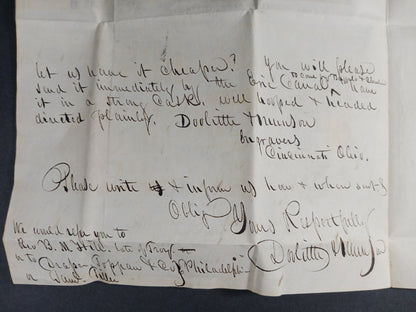 let us have it cheaper? You will please
send it immediately by the Erie Canal to come by Buffalo & Cleveland have
it in a strong cask, well hooped & headed
directed plainly. Doolittle & Munson
Engravers
Cincinnati Ohio.
Please write & inform us how & when sent &
Oblige Yours Respectfully
Doolittle & Munson
We would refer you to
Rev B. M. Hill, late of Troy
or to Draper Toppan & Co Philadelphia
or